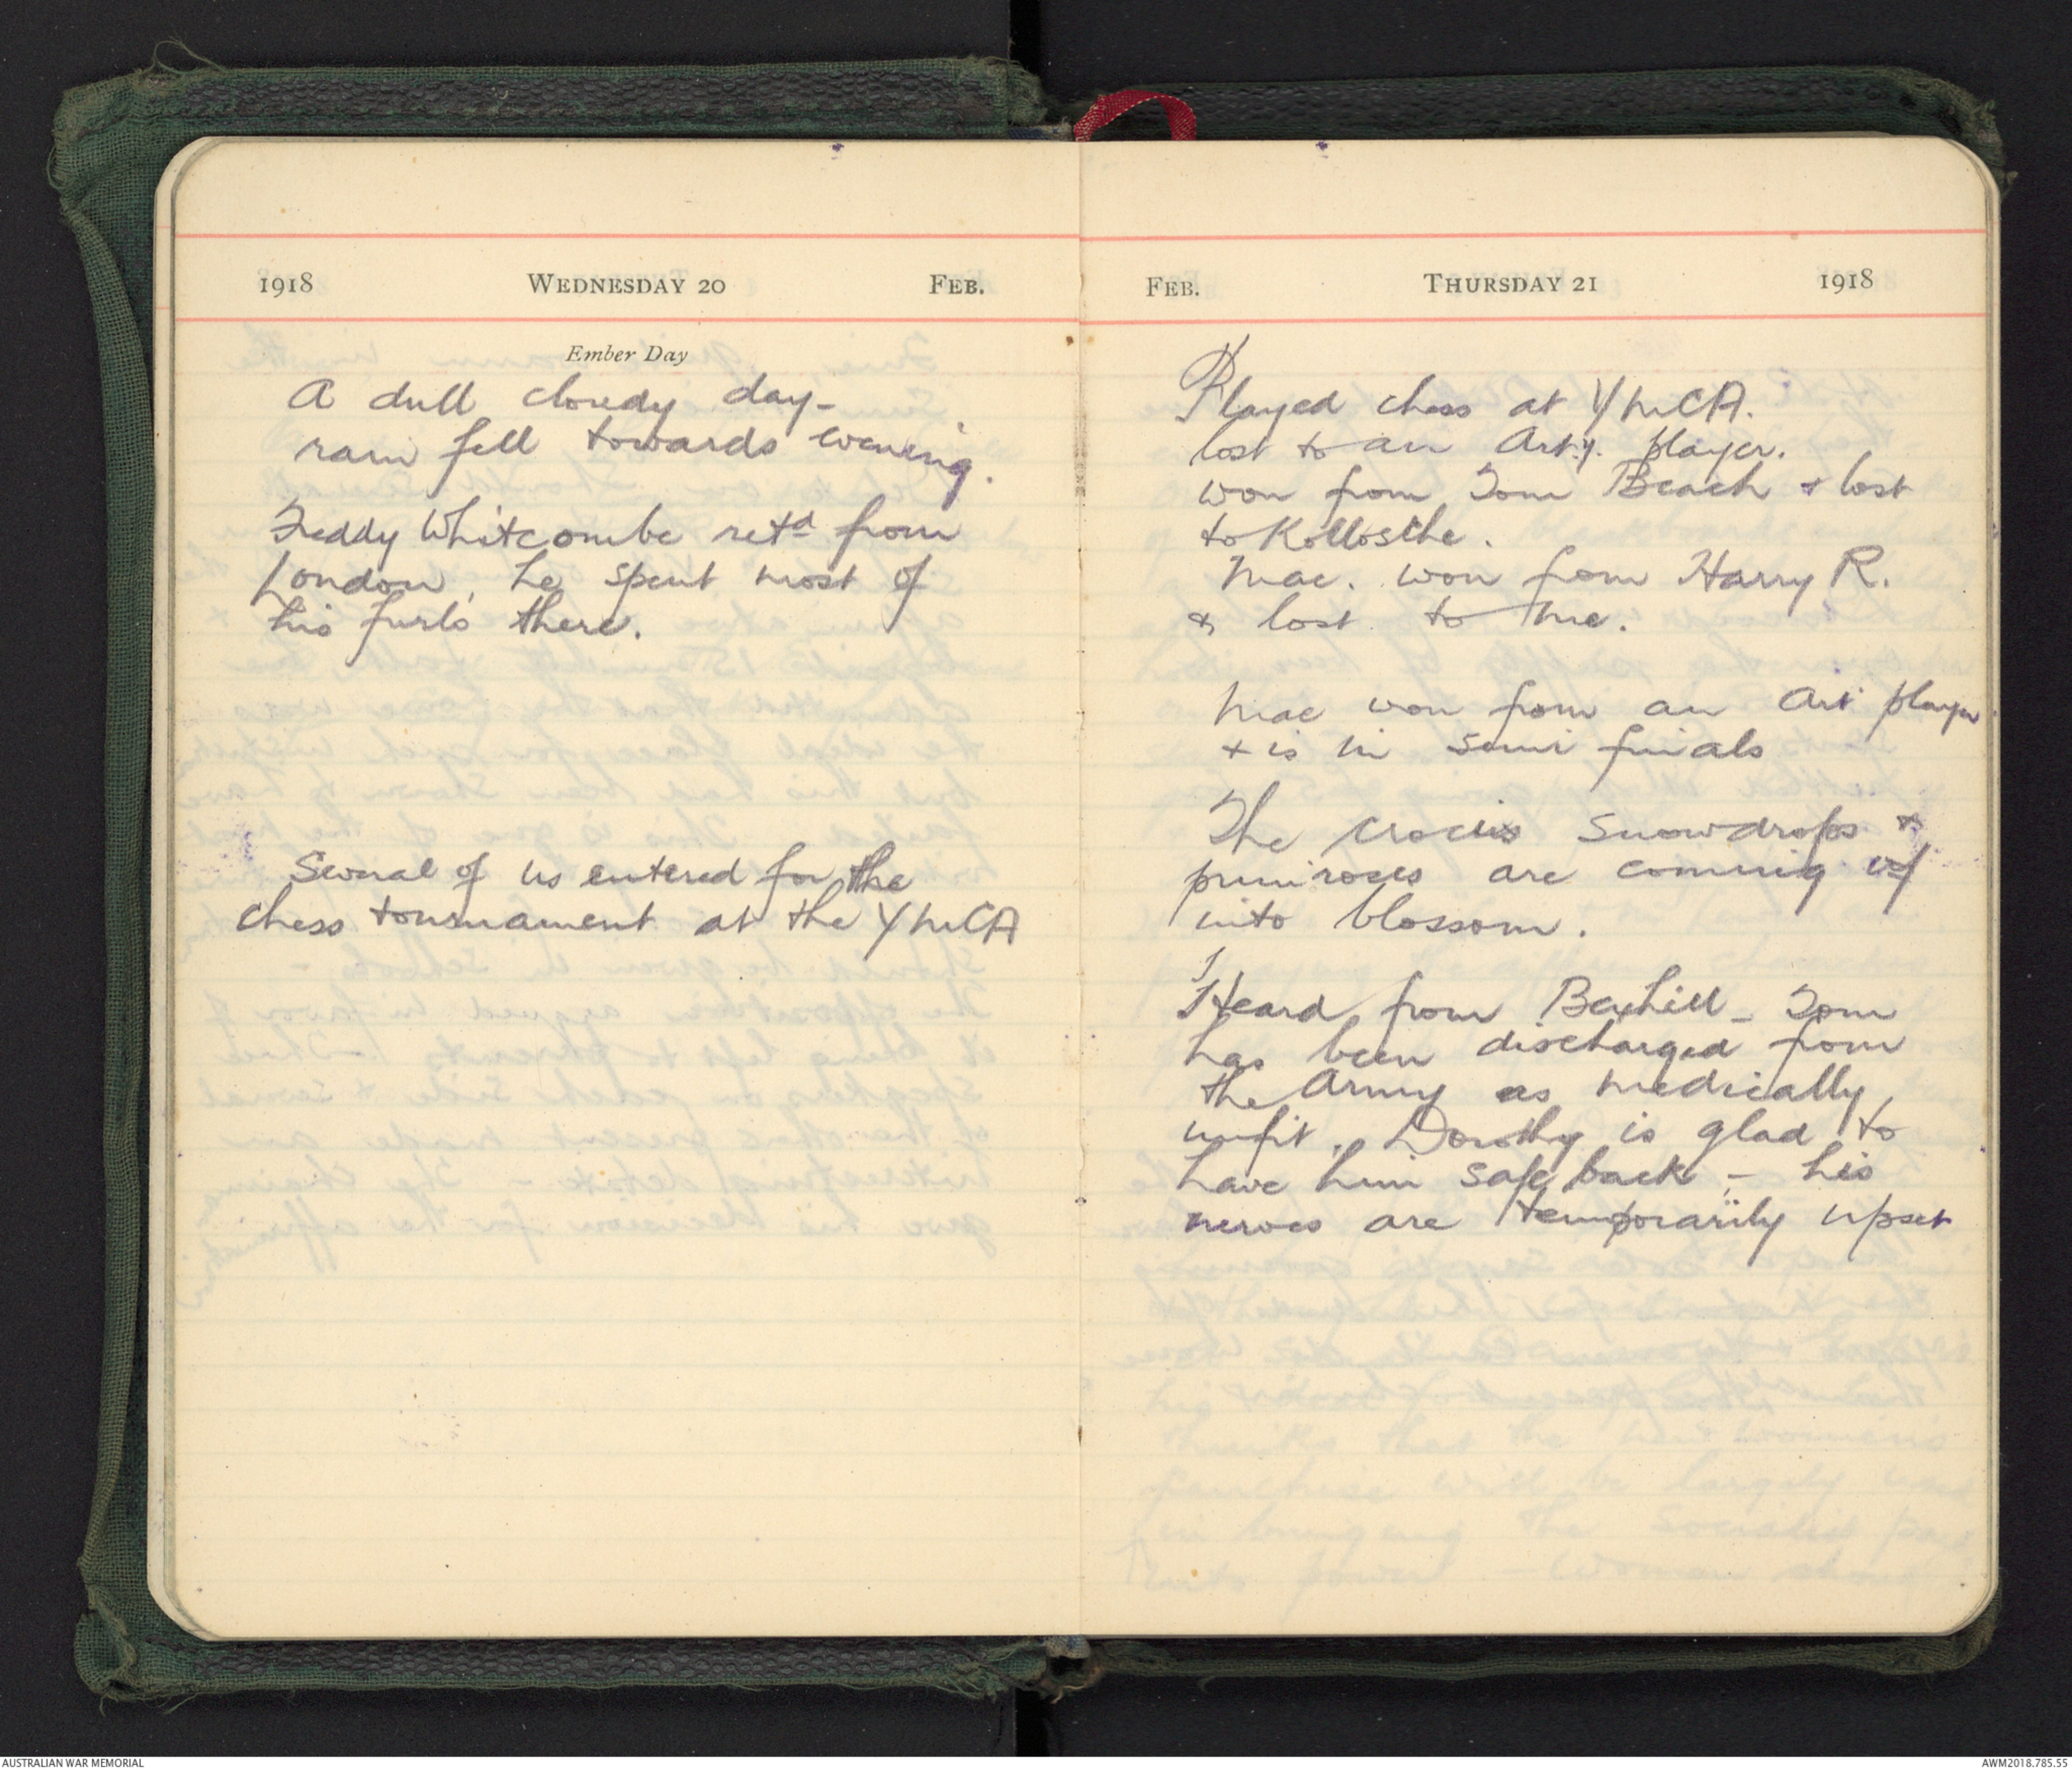 1918 WEDNESDAY 20 FEB.
Ember Day
A dull cloudy day-
rain fell towards evening.
Teddy Whitcombe retd from
London, he spent most of
his furlo there.
Several of us entered for the
chess tournament at the YMCA
FEB. THURSDAY 21 1918
Played chess at YMCA.
lost to an Arty. player.
won from Tom Beach & lost
to
Mac. won from Harry R.
& lost to me.
Mac won from an Art player
+ is in semi finals
The crocus snowdrops &
primroses are coming
into blossom.
Heard from Bexhill - Tom
has been discharged from
the Army as medically
unfit. Dorothy is glad to
have him safe back - his
nerves are temporarily upset
AUSTRALIAN WAR MEMORIAL
AWM2018.785.55